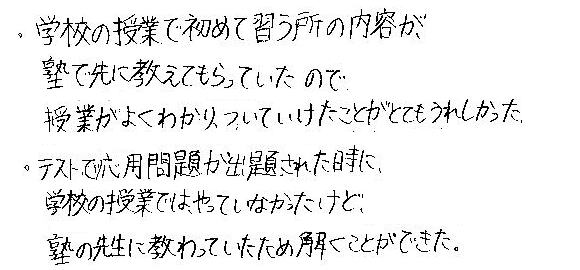 。学校の授業で初めて習う所の内容が、
塾で先に教えてもらっていたので
授業がよくわかり、ついていけたことがとてもうれしかった。
。テストで応用問題が出題された時に、
学校の授業ではやっていなかったけど、
塾の先生に教わっていたため解くことができた。